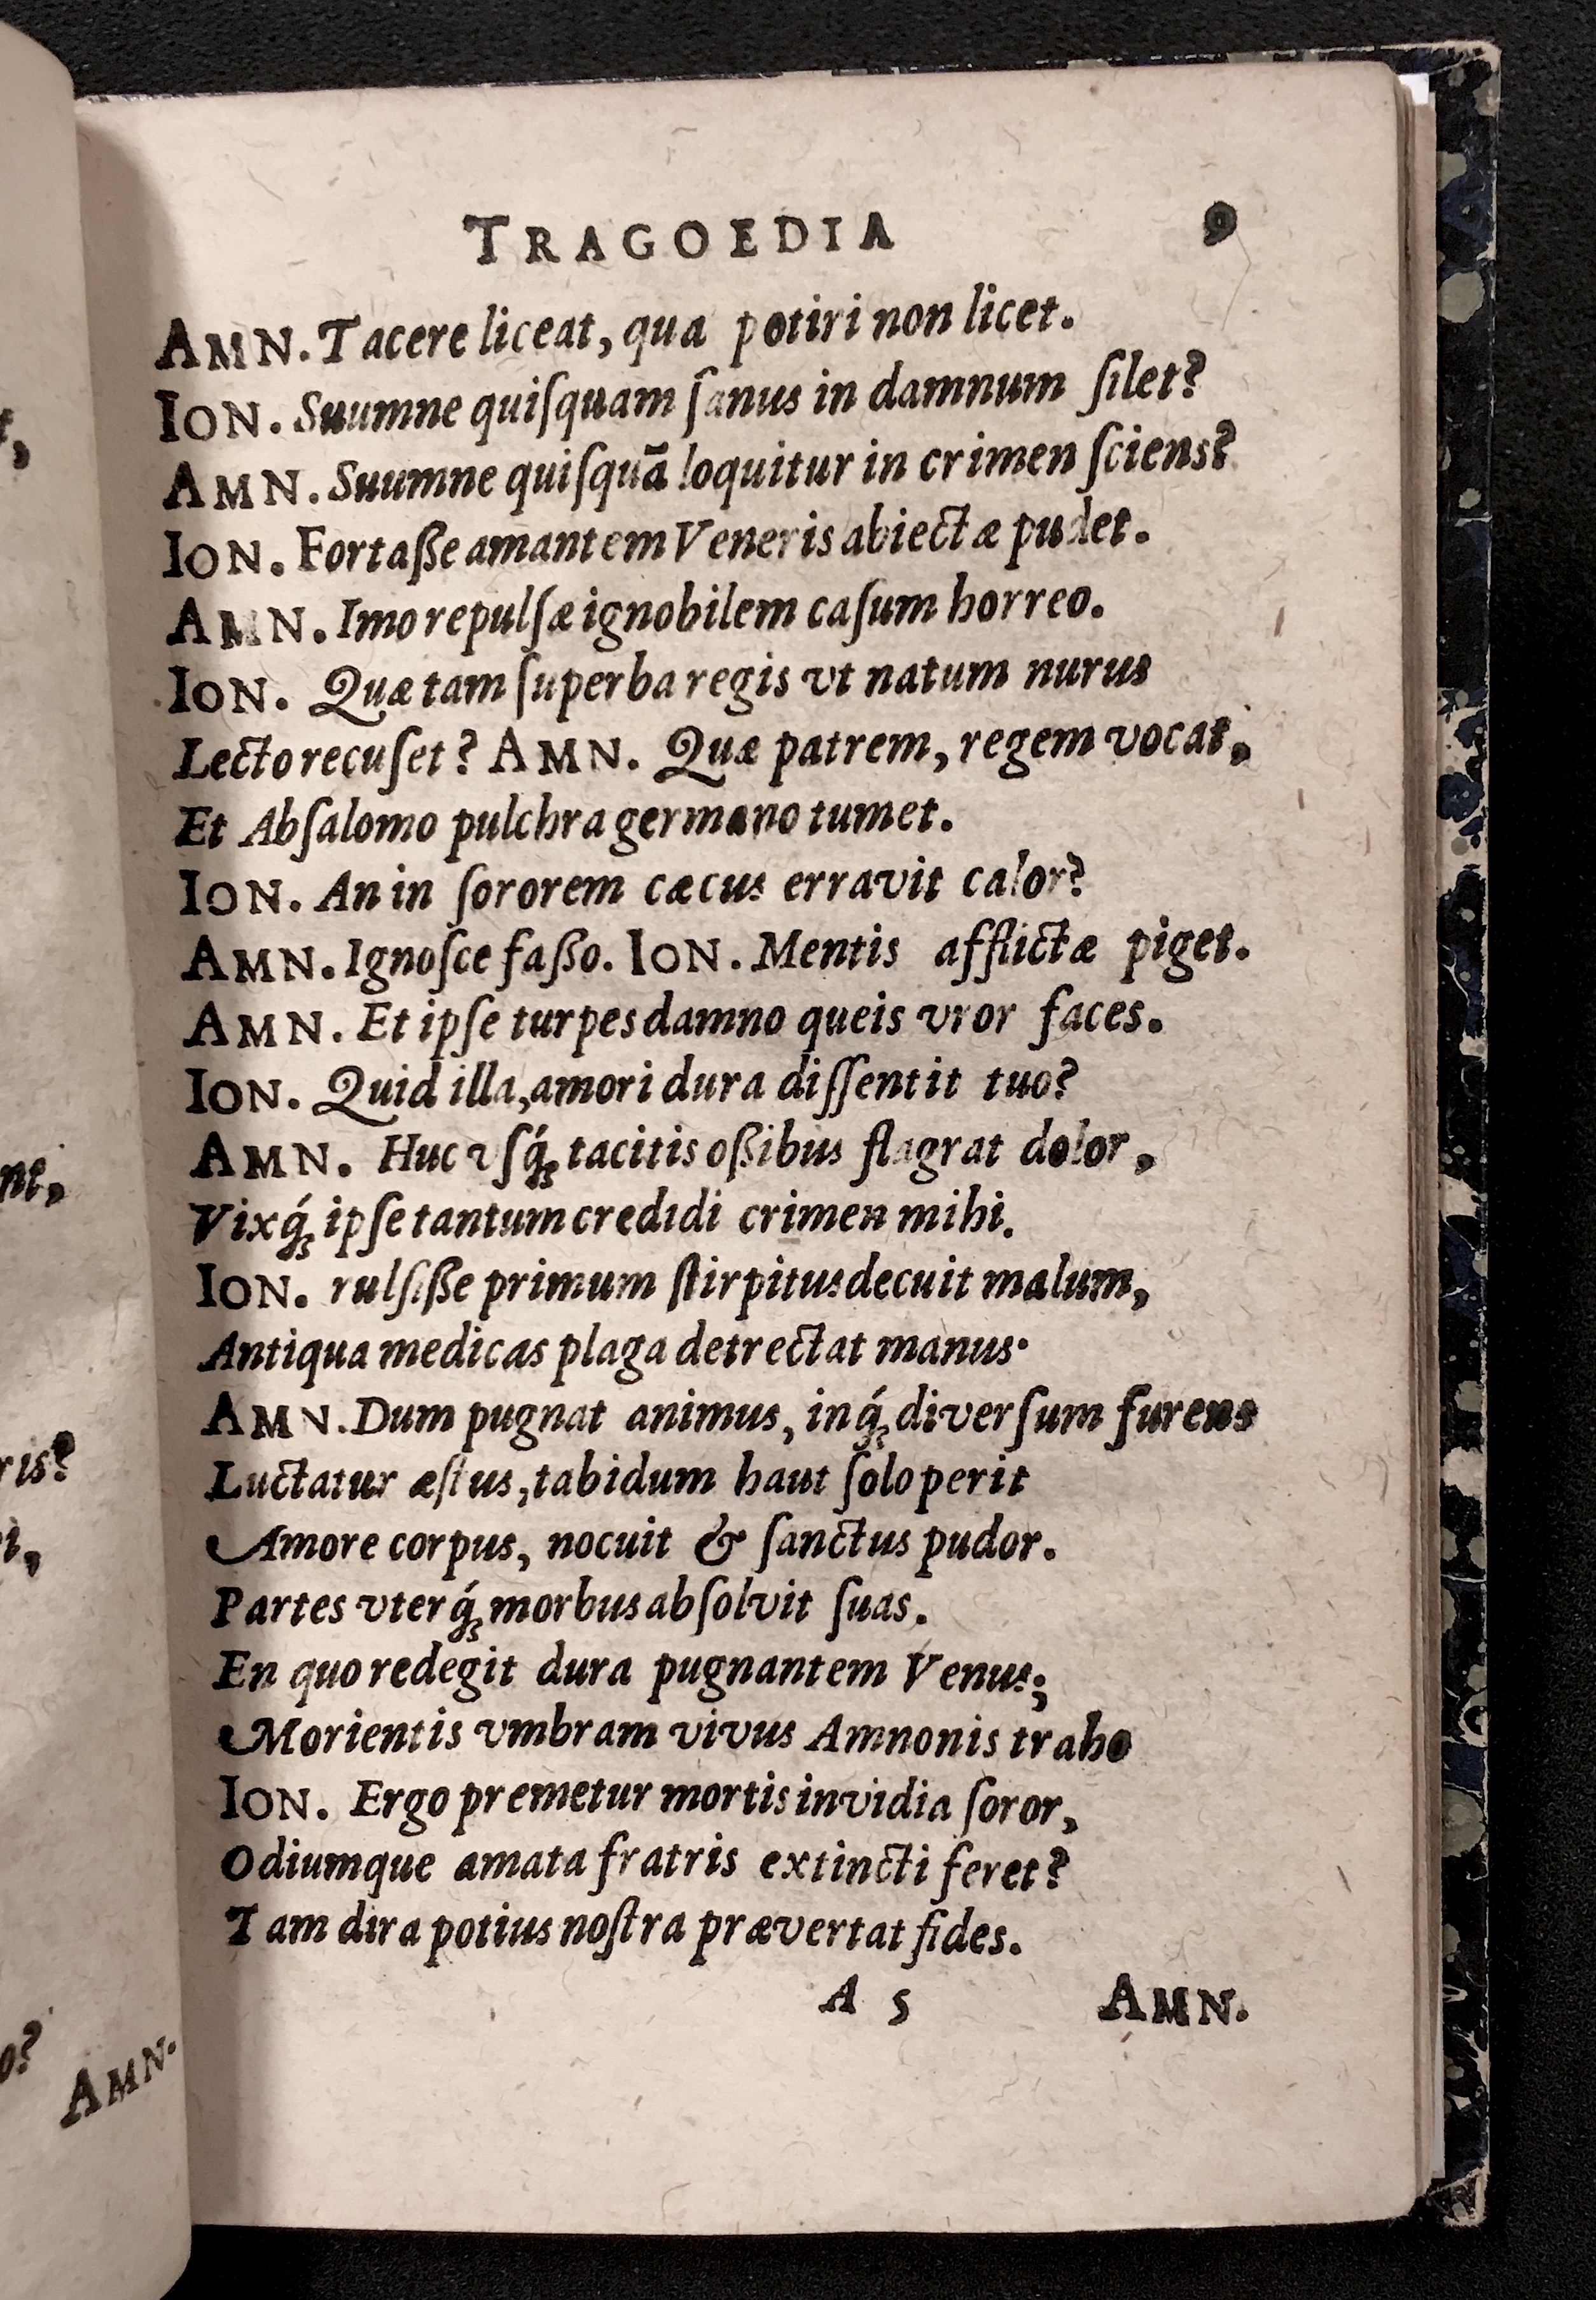 TRAGOEDIA 9
AMN. Tacere liceat, qua potiri non licet.
ION. Suumne quiſquam ſanus in damnum ſilet?
AMN. Suumne quiſquā loquitur in crimen ſciens?
ION. Fortaße amantem Veneris abiectæ pudet.
AMN. Imo repulſæ ignobilem caſum horreo.
ION. Quæ tam ſuperba regis vt natum nurus
Lecto recuſet? AMN. Quæ patrem, regem vocat,
Et Abſalomo pulchra germano tumet.
ION. An in ſororem cæcus erravit calor?
AMN. Ignoſce faßo. ION. Mentis afflictæ piget.
AMN. Et ipſe turpes damno queis vror faces.
ION. Quid illa, amori dura diſſentit tuo?
AMN. Huc vſq́; tacitis oßibus flagrat dolor,
Vixq́; ipſe tantum credidi crimen mihi.
ION. rulſiße primum ſtirpitus decuit malum,
Antiqua medicas plaga detrectat manus·
AMN. Dum pugnat animus, inq́; diverſum furens
Luctatur æſtus, tabidum haut ſolo perit
Amore corpus, nocuit & ſanctus pudor.
Partes vterq́; morbus abſolvit ſuas.
En quo redegit dura pugnantem Venus;
Morientis vmbram vivus Amnonis traho
ION. Ergo premetur mortis invidia ſoror,
Odiumque amata fratris extincti feret?
Tam dira potius noſtra prævertat fides.
A 5 AMN.
ris?
AMN.